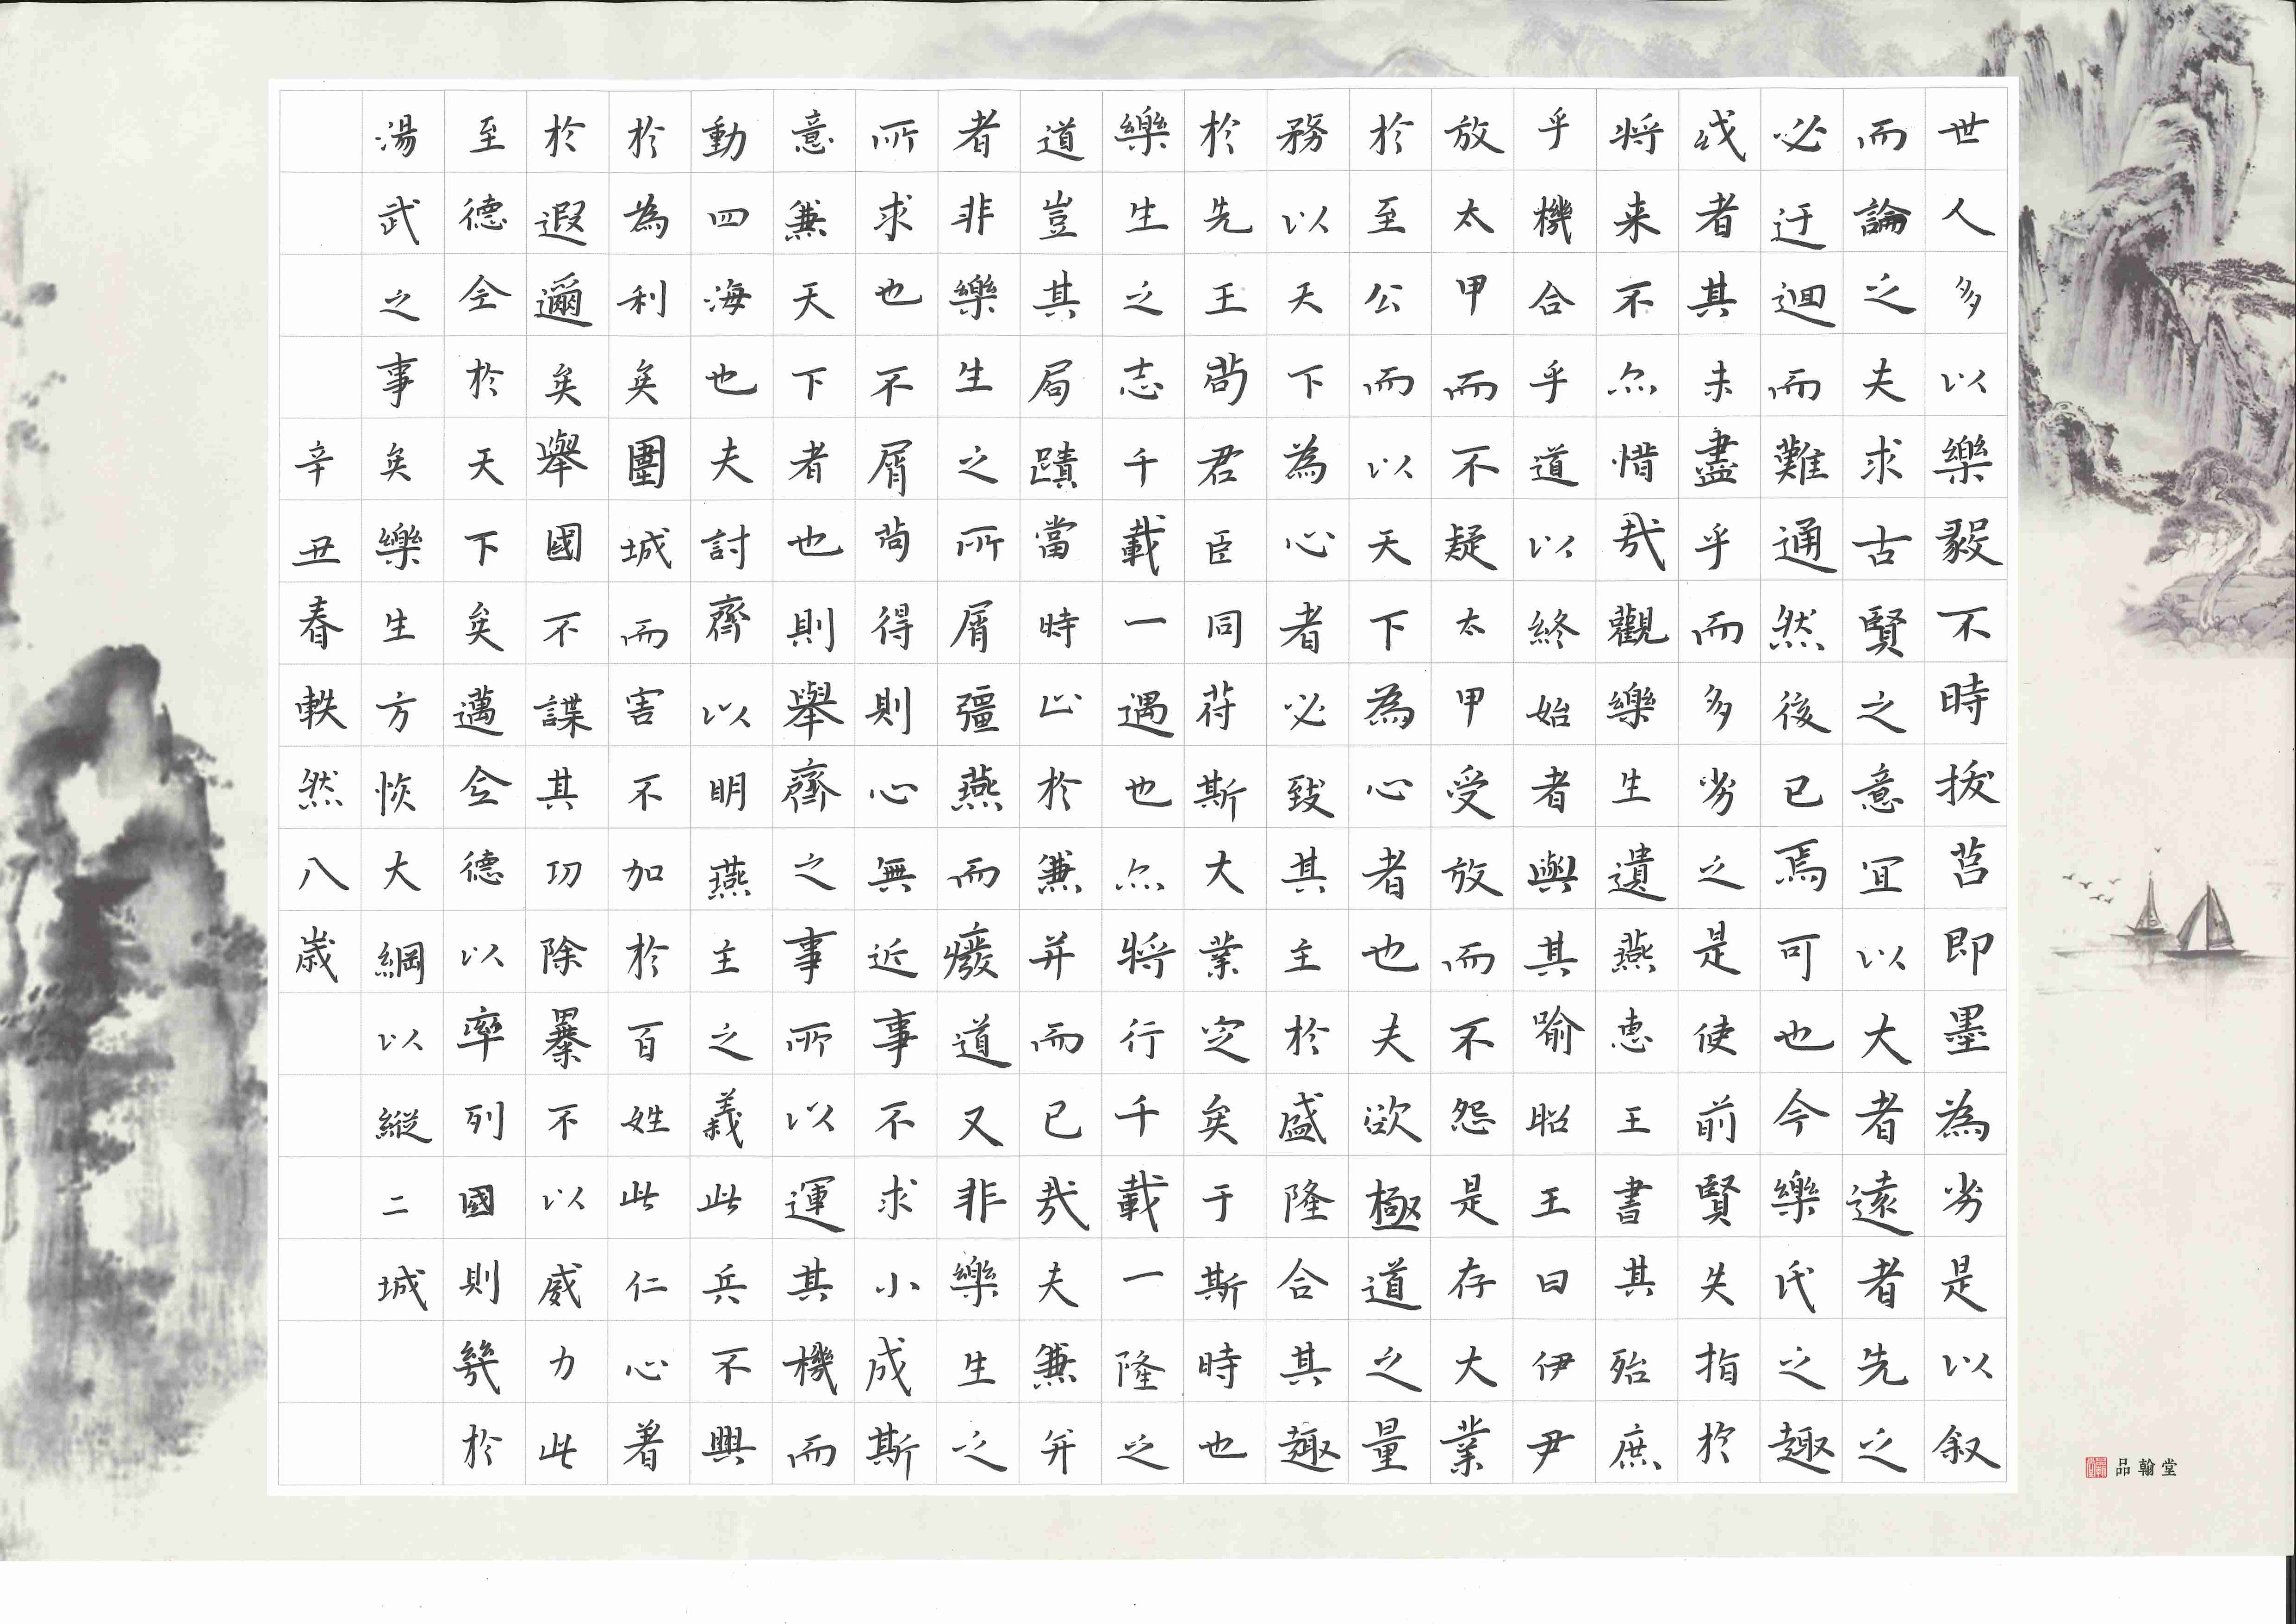 世人多以樂毅不時拔莒即墨為劣是以叙
而論之夫求古賢之意宜以大者遠者先之
必迂迴而難通然後已焉可也今樂氏之趣
或者其未盡乎而多劣之是使前賢失指於
将来不亦惜哉觀樂生遺燕惠王書其殆庶
乎機合乎道以終始者與其喻昭王曰伊尹
放太甲而不疑太甲受放而不怨是存大業
於至公而以天下為心者也夫欲極道之量
務以天下為心者必致其主於盛隆合其趣
於先王苟君臣同苻斯大業定矣于斯時也
樂生之志千載一遇也亦將行千載一隆之
道豈其局蹟當時止於兼并而已哉夫兼并
者非樂生之所屑彊燕而廢道又非樂生之
所求也不屑苟得則心無近事不求小成斯
意兼天下者也則舉齊之事所以運其機而
動四海也夫討齊以明燕主之義此兵不興
於為利矣圍城而害不加於百姓此仁心著
於遐邇矣舉國不謀其功除暴不以威力此
至德全於天下矣邁全德以率列國則幾於
湯武之事矣樂生方恢大綱以縱二城
辛丑春軼然八歲
品翰堂